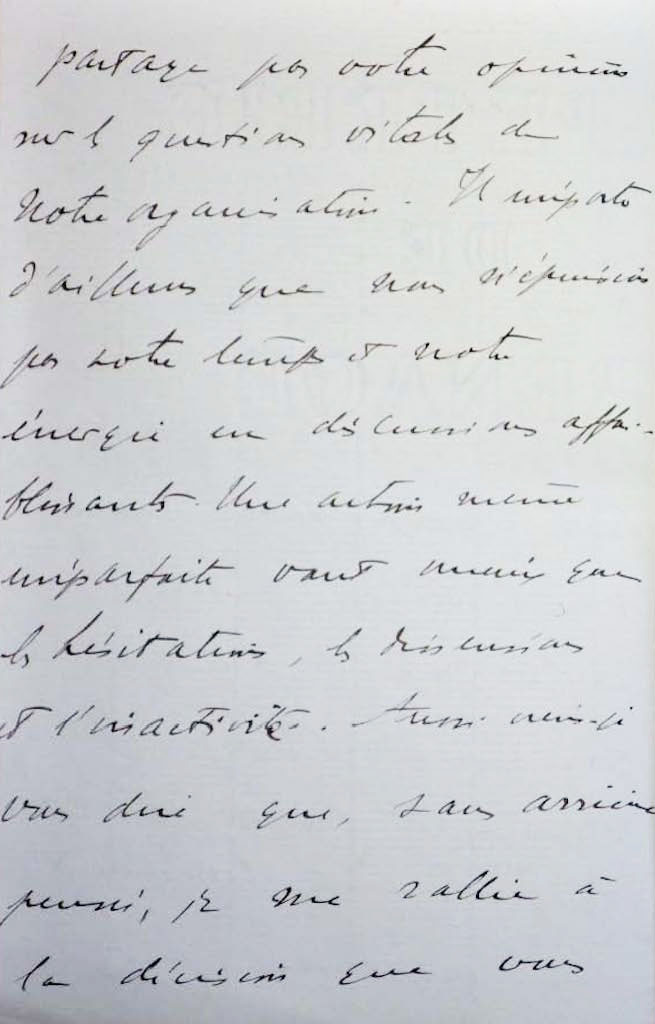 partage pas votre opinion
sur les questions vitales de
Notre organisation. Il importe
d'ailleurs que nous n'épuisions
pas notre temps et notre
énergie en discussions affai-
blissantes. Une action même
imparfaite vaut mieux que
les hésitations, les dissensions
et l'inactivité. Aussi viens-je
vous dire que, sans arrière
pensée, je me rallie à
la décision que vous